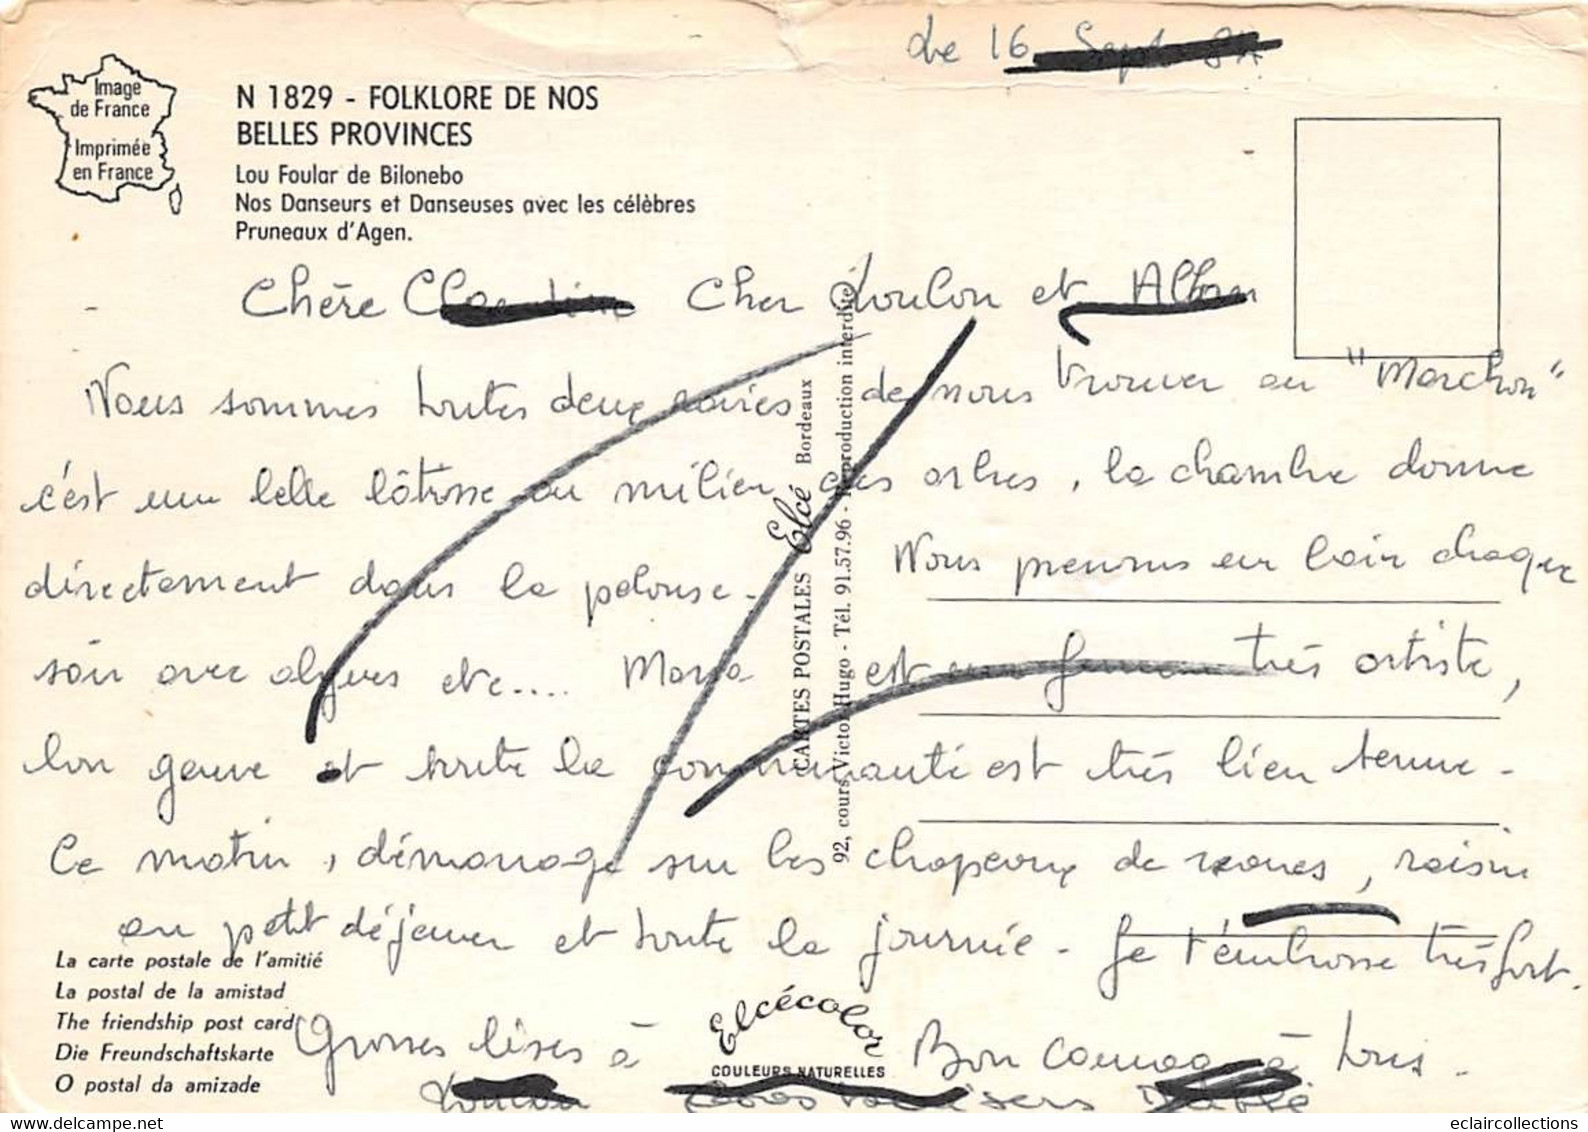 Le 16 Sept
Image
de France
Imprimée
en France
N 1829 - FOLKLORE DE NOS
BELLES PROVINCES
Lou Foular de Bilonebo
Nos Danseurs et Danseuses avec les célèbres
Pruneaux d'Agen.
Chère Cher Loulou et
Nous sommes toutes deux ravies de nous trouver au "Marchon"
c'est une belle bâtisse au milieu des arbres, la chambre donne
directement dans la pelouse. Nous prenons un bain chaque
soir avec algues etc.... Marsa est une femme très artiste,
bon genre et toute la communauté est très bien tenue.
Ce matin, démarrage sur les chapeaux de roues, raisin
au petit déjeuner et toute la journée. Je t'embrasse très fort.
Grosses bises à Bon courage à tous.
CARTES POSTALES Elcé Bordeaux
92, cours Victor Hugo - Tél. 91.57.96 - Reproduction interdite
La carte postale de l'amitié
La postal de la amistad
The friendship post card
Die Freundschaftskarte
O postal da amizade
Elcécolor
COULEURS NATURELLES
eclaircollections